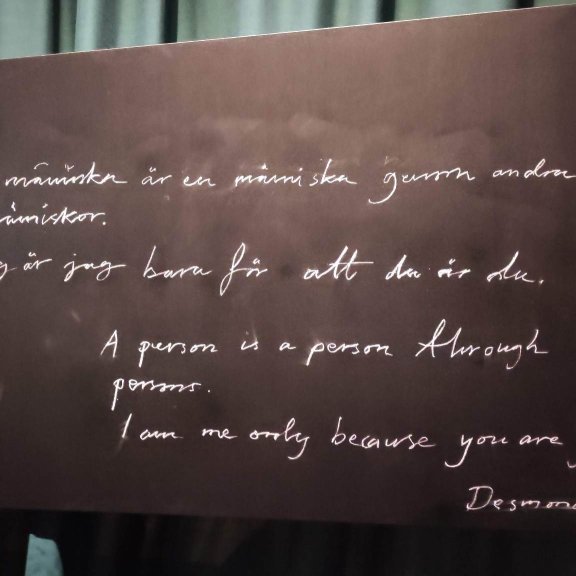 människa är en människa genom andra
människor.
är jag bara för att du är du.
A person is a person through
persons.
I am me only because you are
Desmond